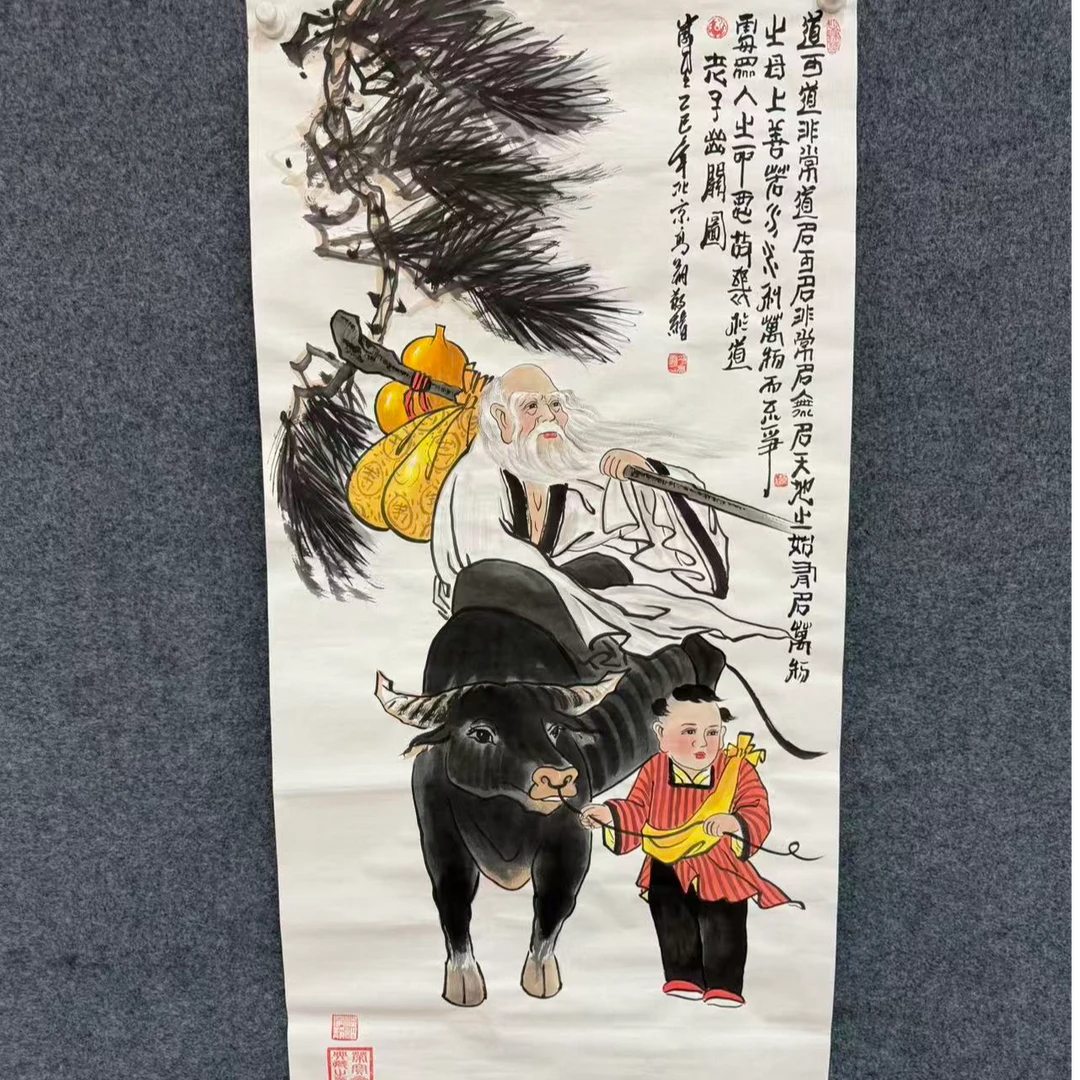 道可道非常道名可名非常名無名天地之始有名萬物
之母上善若水水利萬物而不爭
處眾人之所惡故幾於道
老子出關圖
歲在乙巳年北京